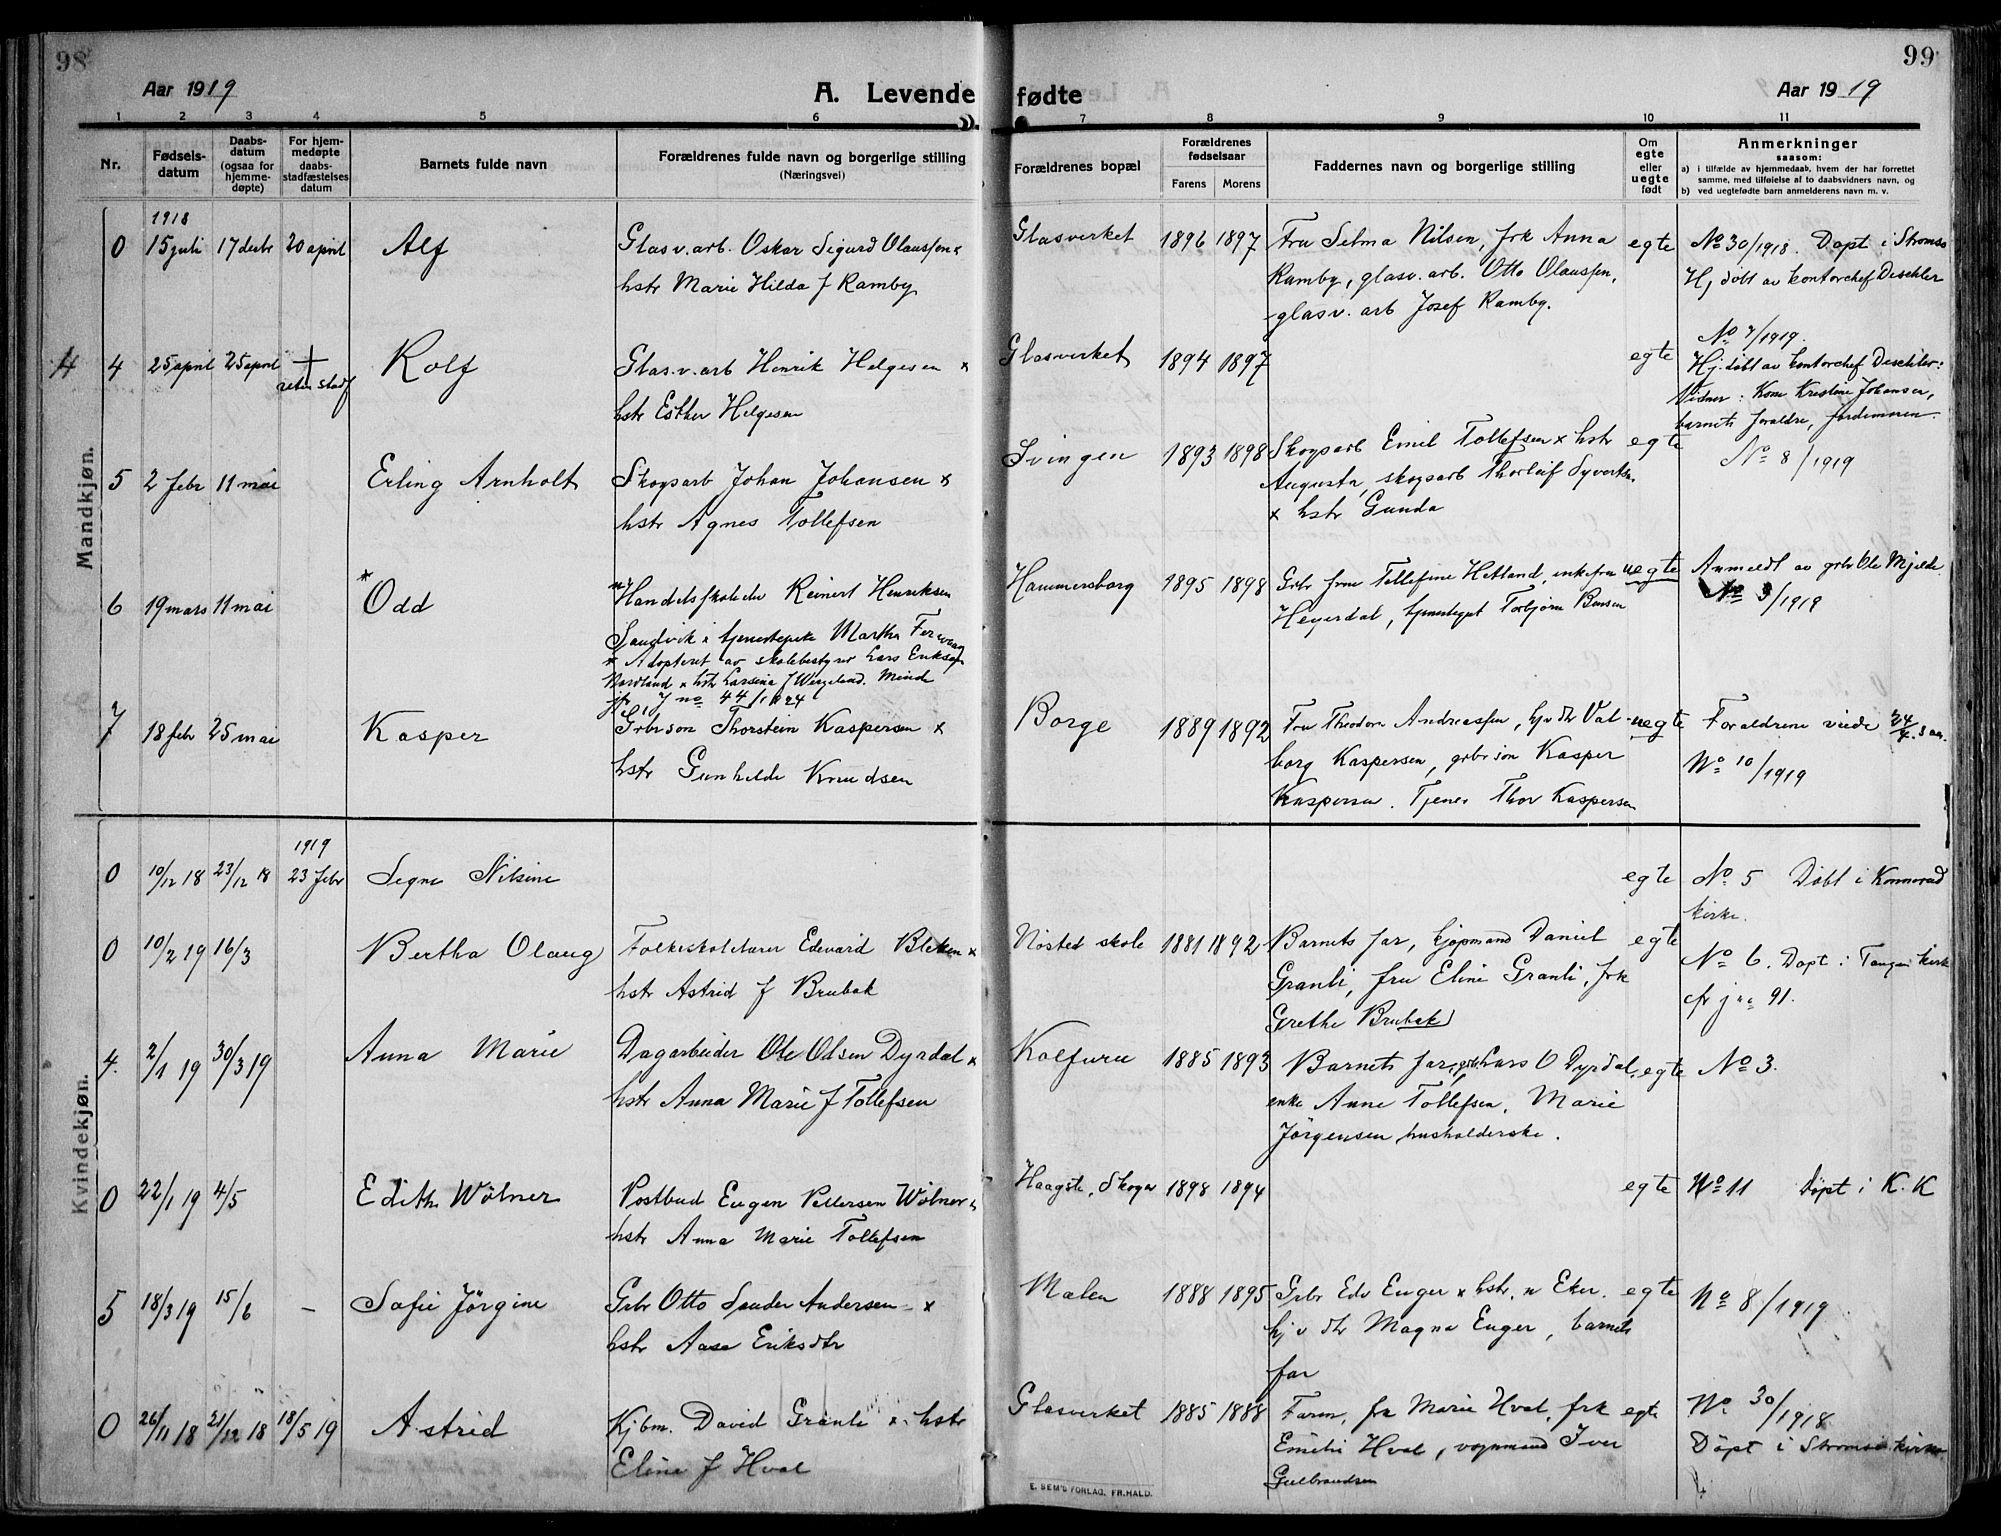 98
99
Aar 1919
A. Levende fødte
Aar 1919
1 2 3 4 5 6 7 8 9 10 11
Nr.
Fødsels-
datum
Daabs-
datum
(ogsaa for
hjemme-
døpte)
For hjem-
medøpte
daabs-
stadfæstelses
datum
Barnets fulde navn
Forældrenes fulde navn og borgerlige stilling
(Næringsvei)
Forældrenes bopæl
Forældrenes
fødselsaar
Farens Morens
Faddernes navn og borgerlige stilling
Om
egte
eller
uegte
født
Anmerkninger
saasom:
a) i tilfælde av hjemmedaab, hvem der har forrettet
samme, med tilføielse af to daabsvidners navn, og
b) ved uegtefødte barn anmelderens navn m. v.
Mandkjøn.
1918
0 15 juli 17 decbr 20 april Alf
Glasv. arb. Oskar Sigurd Olaussen x
hstr Marie Hilda f Ramby
Glasverket 1896 1897
Fru Selma Nilsen, frk Anna
Ramby, glasv. arb. Otto Olaussen,
glasv. arb Josef Ramby.
egte
No 30/1918. Døpt i Strømsø
Hj døbt av kontorchef Deschler
4 4 25 april 25 april + Rolf
Glas.v.arb Henrik Helgesen x
hstr Esther Helgesen
Glasverket 1894 1897
egte
No 7/1919.
Hj. døbt av kontorchef Deschler:
Vidner: Kone Kristine Johansen,
barnets foraldre, jordemoren.
5 2 febr 11 mai Erling Arnholt
Skogsarb Johan Johansen x
hstr Agnes Tollefsen
Svingen 1893 1898
Skogsarb Emil Tollefsen x hstr
Augusta, skogsarb Thorleif Syvertsen
x hstr Gunda
egte
No 8/1919
6 19 mars 11 mai *Odd
Handelsskoleelev Reinert Henriksen
Sandvik x tjenestepike Martha
* Adopteret av skolebestyrer Lars Eriksen
Nordland x hstr Larsine f Wergeland. Minde
jfr. J no 44/1924
Hammersborg 1895 1898
Grbr frue Tollefine Hetland, enkefru
Heyerdal, Torbjørn Bensen
uegte
Anmeldt av grbr Ole Mjelde
No 9/1919
7 18 febr 25 mai Kasper
Grbrsøn Thorstein Kaspersen x
hstr Gunhilde Knudsen
Borge 1889 1892
Fru Theodora Andreassen, hjv dtr Val-
borg Kaspersen, grbr søn Kasper
Kaspersen. Tjener Thor Kaspersen
uegte
Foraldrene viede 24/4 s aar.
No 10/1919
Kvindekjøn.
1919
0 10/12 18 23/12 18 23 febr Signe Nilsine
egte
No 5 Døbt i Konnerud
kirke.
0 10/2 19 16/3 Bertha Olaug
Folkeskolelærer Edevard Bleken x
hstr Astrid f Brubak
Nøsted skole 1881 1892
Barnets far, kjøpmand Daniel
Granli, fru Eline Granli, frk
Grethe Brubak
egte
No 6. Døpt i Tangen kirke
cfr j no 91.
4. 2/1 19 30/3 19 Anna Marie
Dagarbeider Ole Olsen Dyrdal x
hstr Anna Marie f Tollefsen
Kolfuru 1885 1893
Barnets far, grbr Lars O Dyrdal,
enke Anne Tollefsen, Marie
Jørgensen husholderske.
egte
No 3.
0 22/1 19 4/5 Edith Wölner
Postbud Eugen Pettersen Wölner x
hstr Anna Marie Tollefsen
Haagst., Skoger 1898 1894
egte
No 11 Døpt i K.K
5 18/3 19 15/6 - Sofie Jörgine
Grbr Otto Sander Andersen x
hstr Aase Eriksdtr
Malen 1888 1895
Grbr Edv Enger x hstr, n Eker.
hj v dtr Magna Enger, barnets
far
egte
No 8/1919
0 26/11 18 21/12 18 18/5 19 Astrid
Kjbm. David Granli x hstr
Eline f Hval
Glasverket 1885 1888
Faren, fr Marie Hval, frk
Emilie Hval, vognmand Iver
Gulbrandsen
egte
No 30/1918
Döpt i Strømsø kirke
E. SEM'S FORLAG, FR.HALD.